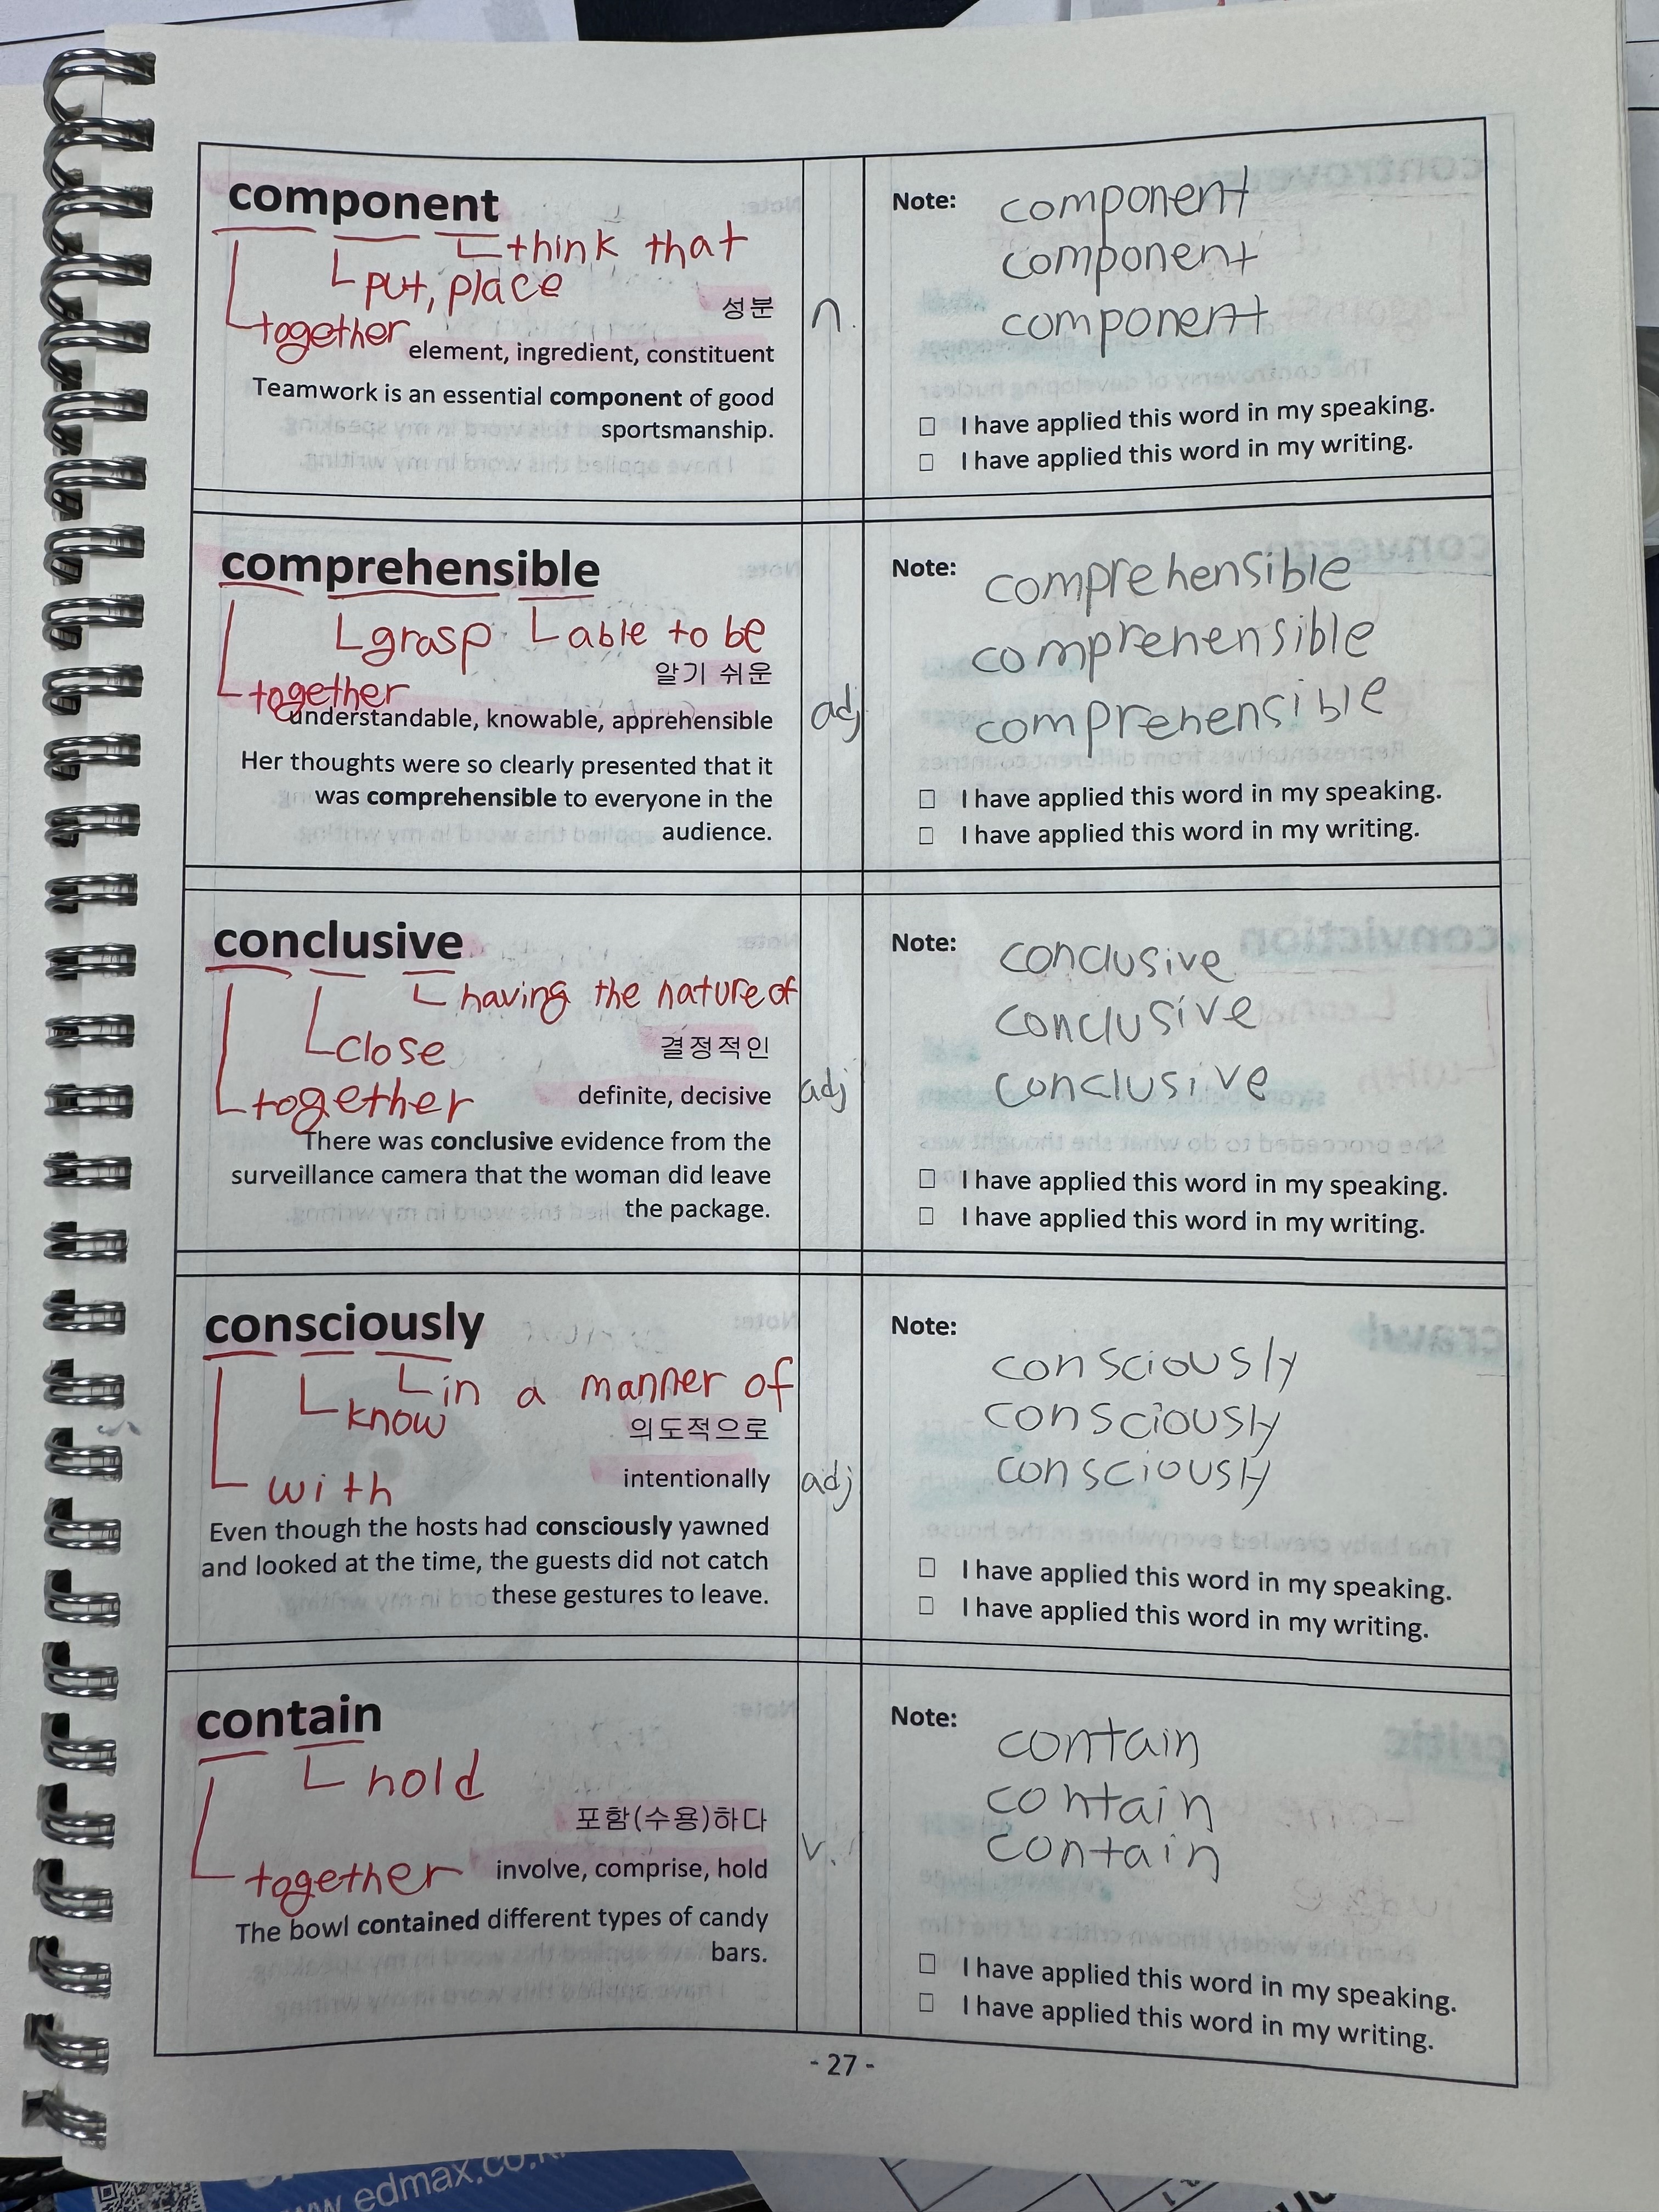 component
think that
put, place
성분
together
element, ingredient, constituent
Teamwork is an essential component of good
sportsmanship.
n.
Note:
component
component
component
I have applied this word in my speaking.
I have applied this word in my writing.
comprehensible
grasp
able to be
알기 쉬운
together
understandable, knowable, apprehensible
Her thoughts were so clearly presented that it
was comprehensible to everyone in the
audience.
adj
Note:
comprehensible
comprehensible
comprehensible
I have applied this word in my speaking.
I have applied this word in my writing.
conclusive
having the nature of
close
결정적인
together
definite, decisive
There was conclusive evidence from the
surveillance camera that the woman did leave
the package.
adj
Note:
conclusive
conclusive
conclusive
I have applied this word in my speaking.
I have applied this word in my writing.
consciously
in a manner of
know
의도적으로
with
intentionally
Even though the hosts had consciously yawned
and looked at the time, the guests did not catch
these gestures to leave.
adj
Note:
consciously
consciously
consciously
I have applied this word in my speaking.
I have applied this word in my writing.
contain
hold
포함(수용)하다
together
involve, comprise, hold
The bowl contained different types of candy
bars.
v.
Note:
contain
contain
contain
I have applied this word in my speaking.
I have applied this word in my writing.
- 27 -